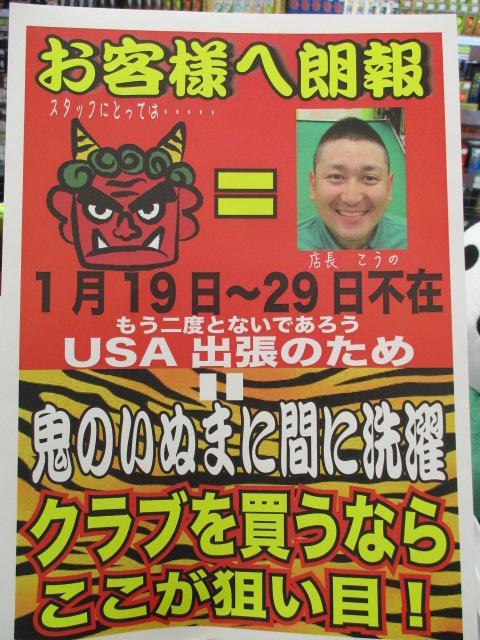 お客様へ朗報
スタッフにとっては・・・・・
=
店長 こうの
1月19日～29日不在
もう二度とないであろう
USA 出張のため
=
鬼のいぬまに間に洗濯
クラブを買うなら
ここが狙い目！